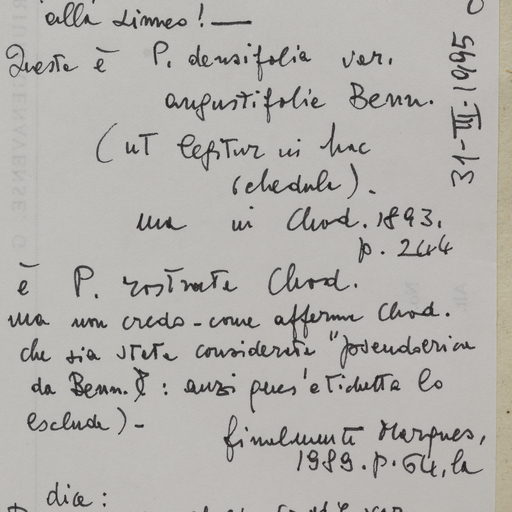 alla Linneo! —
Questa è P. densifolia var.
angustifolia Benn.
(ut legitur in hac
schedula).
ma in Chod. 1893.
p. 244
è P. rostrata Chod.
ma non credo - come afferma Chod.
che sia stata considerata "pseudoerica
da Benn. : anzi ques'etichetta lo
esclude) -
finalmente Marques,
1989. p. 64, la
dice:
31-III-1995